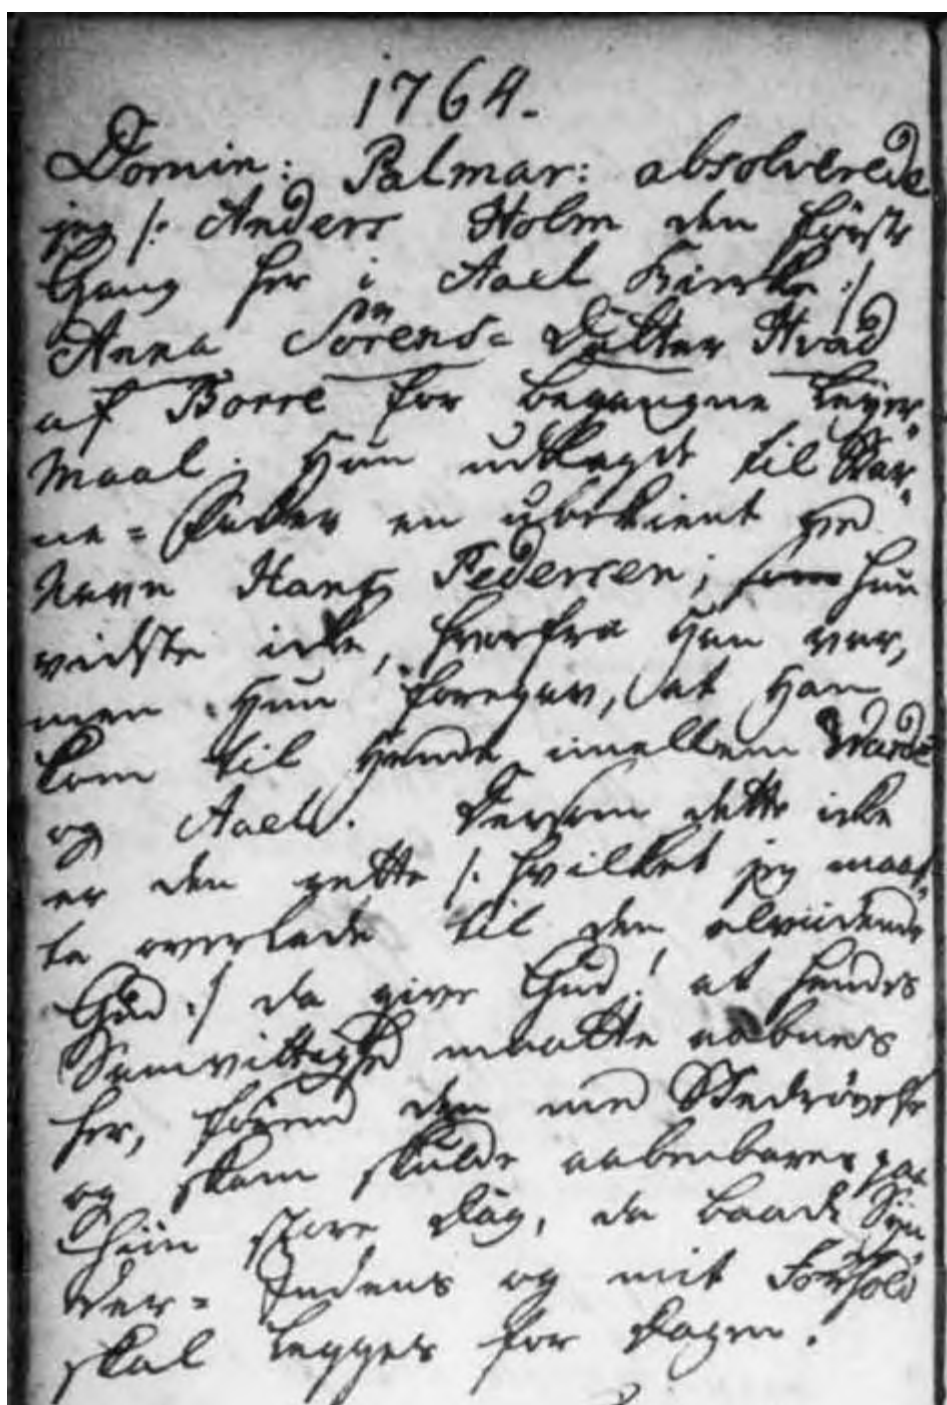 1764.
Domin: Palmar: absolverede
jeg /: Anders Holm den første
Gang her i Aael Kircke :/
Anna Sørens= Datter Hvad
af Borre for begangne Leyer„
Maal; Hun udlagde til Bar„
ne=Fader en ubekient ved
Navn Hans Pedersen; hun
vidste icke, hvorfra Han var,
men Hun foregav, at Han
kom til Hende imellem Warde
og Aael. Dersom dette icke
er den rette /: hvilket jeg maat„
te overlade til den alvidende
Gud :/ da give Gud! at hendes
Samvittighed maatte aabnes
her, førend den med Bedrøvelse
og skam skulde aabenbares paa
hiin store Dag, da baade Syn„
der=Indens og mit Forhold
skal legges for Dagen.